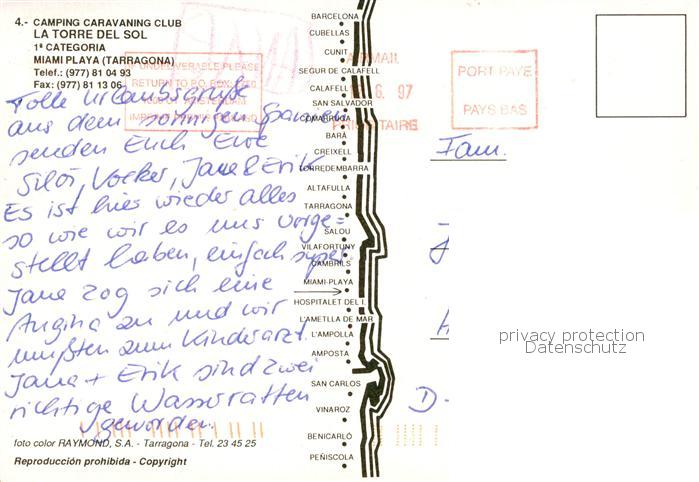 4.- CAMPING CARAVANING CLUB
LA TORRE DEL SOL
1ª CATEGORIA
MIAMI PLAYA (TARRAGONA)
Telef.: (977) 81 04 93
Fax: (977) 81 13 06
IF UNDELIVERABLE PLEASE
RETURN TO P.O. BOX
Tolle Urlaubsgrüße
aus dem sonnigen Spanien
senden Euch Eure
Silvi, Volker, Jana & Erik
Es ist hier wieder alles
so wie wir es uns vorge=
stellt haben, einfach super.
Jana zog sich eine
Angina zu und wir
mußten zum Kinderarzt.
Jana + Erik sind zwei
richtige Wasserratten
geworden.
foto color RAYMOND, S.A. - Tarragona - Tel. 23 45 25
Reproducción prohibida - Copyright
BARCELONA
CUBELLAS
CUNIT
SEGUR DE CALAFELL
CALAFELL
SAN SALVADOR
COMARRUGA
BARÁ
CREIXELL
TORREDEMBARRA
ALTAFULLA
TARRAGONA
SALOU
VILAFORTUNY
CAMBRILS
MIAMI-PLAYA
HOSPITALET DEL I.
L'AMETLLA DE MAR
L'AMPOLLA
AMPOSTA
SAN CARLOS
VINAROZ
BENICARLÓ
PEÑISCOLA
AIRMAIL
6. 97
PRIORITAIRE
PORT PAYE
PAYS BAS
Fam.
D-
privacy protection
Datenschutz